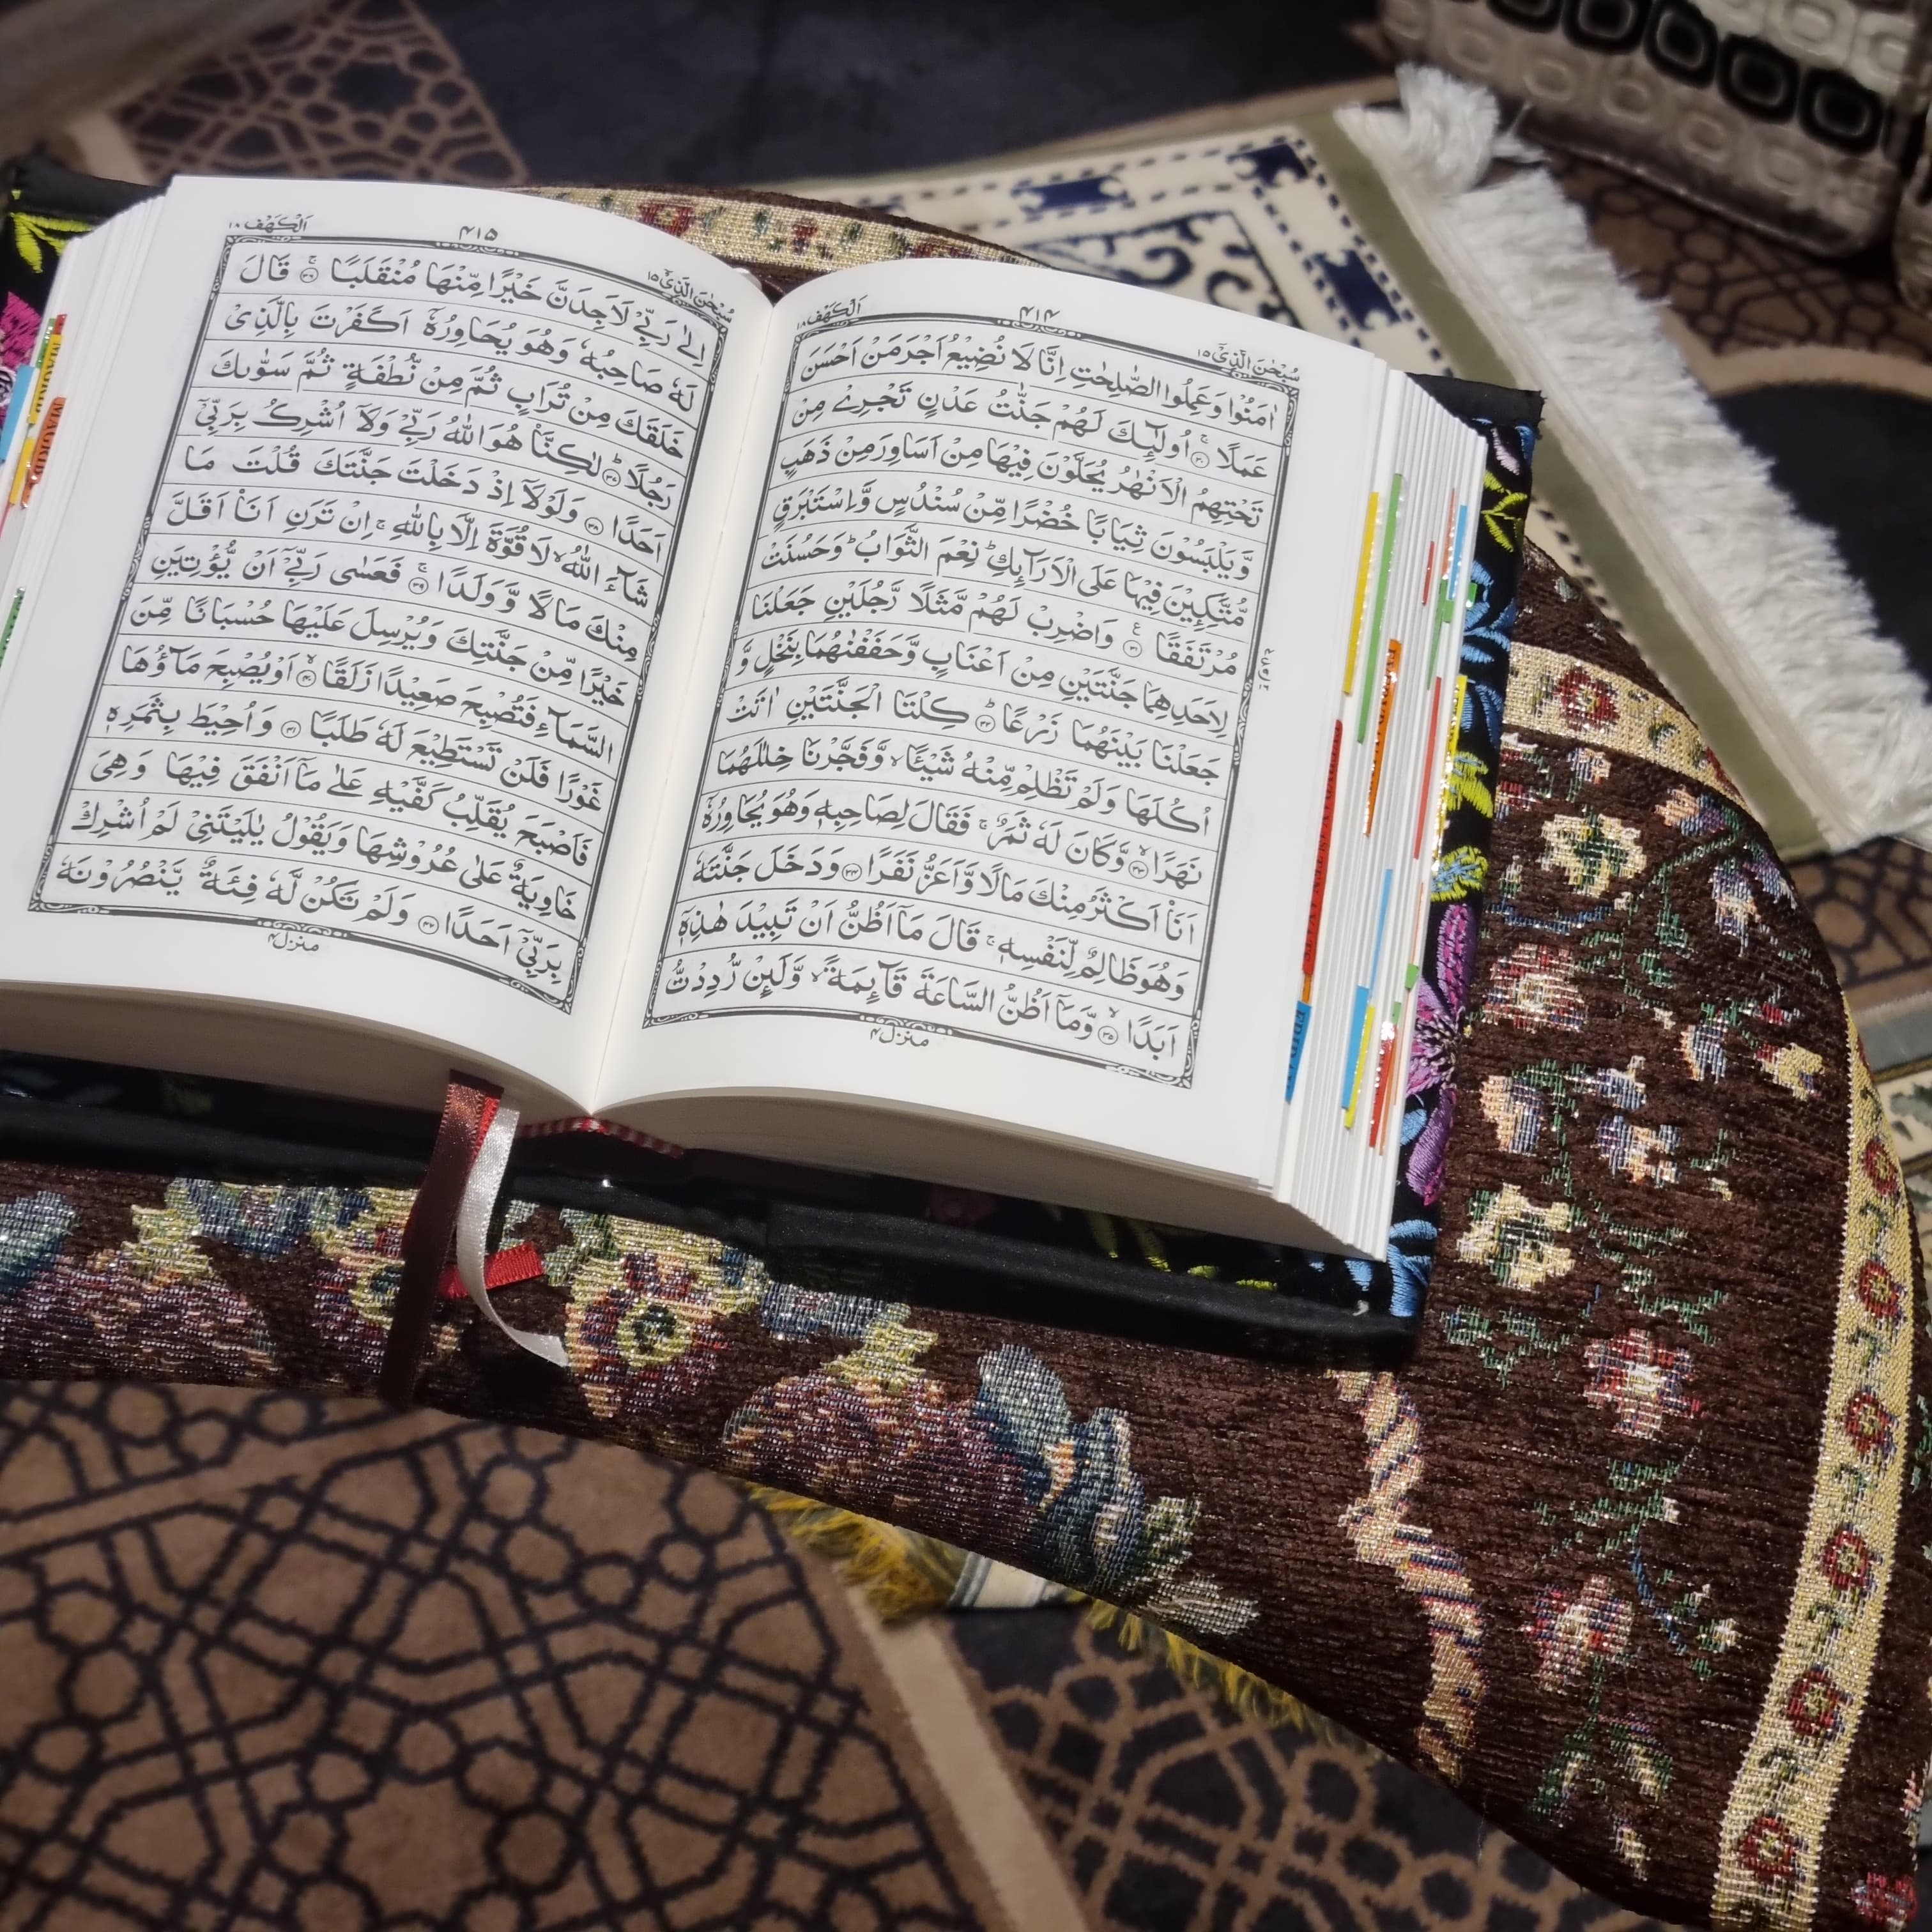 سُبْحٰنَ الَّذِیْۤ ۱۵
۴۱۴
اَلْكَهْف ۱۸
اٰمَنُوْا وَعَمِلُوا الصّٰلِحٰتِ اِنَّا لَا نُضِیْعُ اَجْرَ مَنْ اَحْسَنَ
عَمَلًا ۚ۳۰ اُولٰٓئِكَ لَهُمْ جَنّٰتُ عَدْنٍ تَجْرِیْ مِنْ
تَحْتِهِمُ الْاَنْهٰرُ یُحَلَّوْنَ فِیْهَا مِنْ اَسَاوِرَ مِنْ ذَهَبٍ
وَّیَلْبَسُوْنَ ثِیَابًا خُضْرًا مِّنْ سُنْدُسٍ وَّاِسْتَبْرَقٍ
مُّتَّكِـِٕیْنَ فِیْهَا عَلَی الْاَرَآئِكِ ؕ نِعْمَ الثَّوَابُ ؕ وَحَسُنَتْ
مُرْتَفَقًا ۠۳۱ وَاضْرِبْ لَهُمْ مَّثَلًا رَّجُلَیْنِ جَعَلْنَا
لِاَحَدِهِمَا جَنَّتَیْنِ مِنْ اَعْنَابٍ وَّحَفَفْنٰهُمَا بِنَخْلٍ وَّ
جَعَلْنَا بَیْنَهُمَا زَرْعًا ؕ۳۲ كِلْتَا الْجَنَّتَیْنِ اٰتَتْ
اُكُلَهَا وَلَمْ تَظْلِمْ مِّنْهُ شَیْـًٔا ۙ وَّفَجَّرْنَا خِلٰلَهُمَا
نَهَرًا ۙ۳۳ وَّكَانَ لَهٗ ثَمَرٌ ۚ فَقَالَ لِصَاحِبِهٖ وَهُوَ یُحَاوِرُهٗۤ
اَنَا اَكْثَرُ مِنْكَ مَالًا وَّاَعَزُّ نَفَرًا ۳۴ وَدَخَلَ جَنَّتَهٗ
وَهُوَ ظَالِمٌ لِّنَفْسِهٖ ۚ قَالَ مَاۤ اَظُنُّ اَنْ تَبِیْدَ هٰذِهٖۤ
اَبَدًا ۙ۳۵ وَّمَاۤ اَظُنُّ السَّاعَةَ قَآئِمَةً ۙ وَّلَئِنْ رُّدِدْتُّ
منزل ۴
سُبْحٰنَ الَّذِیْۤ ۱۵
۴۱۵
اَلْكَهْف ۱۸
اِلٰی رَبِّیْ لَاَجِدَنَّ خَیْرًا مِّنْهَا مُنْقَلَبًا ۚ۳۶ قَالَ
لَهٗ صَاحِبُهٗ وَهُوَ یُحَاوِرُهٗۤ اَكَفَرْتَ بِالَّذِیْ
خَلَقَكَ مِنْ تُرَابٍ ثُمَّ مِنْ نُّطْفَةٍ ثُمَّ سَوّٰىكَ
رَجُلًا ؕ۳۷ لٰكِنَّا۠ هُوَ اللّٰهُ رَبِّیْ وَلَاۤ اُشْرِكُ بِرَبِّیْۤ
اَحَدًا ۳۸ وَلَوْلَاۤ اِذْ دَخَلْتَ جَنَّتَكَ قُلْتَ مَا
شَآءَ اللّٰهُ ۙ لَا قُوَّةَ اِلَّا بِاللّٰهِ ۚ اِنْ تَرَنِ اَنَا اَقَلَّ
مِنْكَ مَالًا وَّوَلَدًا ۚ۳۹ فَعَسٰی رَبِّیْۤ اَنْ یُّؤْتِیَنِ
خَیْرًا مِّنْ جَنَّتِكَ وَیُرْسِلَ عَلَیْهَا حُسْبَانًا مِّنَ
السَّمَآءِ فَتُصْبِحَ صَعِیْدًا زَلَقًا ۙ۴۰ اَوْ یُصْبِحَ مَآؤُهَا
غَوْرًا فَلَنْ تَسْتَطِیْعَ لَهٗ طَلَبًا ۴۱ وَاُحِیْطَ بِثَمَرِهٖ
فَاَصْبَحَ یُقَلِّبُ كَفَّیْهِ عَلٰی مَاۤ اَنْفَقَ فِیْهَا وَهِیَ
خَاوِیَةٌ عَلٰی عُرُوْشِهَا وَیَقُوْلُ یٰلَیْتَنِیْ لَمْ اُشْرِكْ
بِرَبِّیْۤ اَحَدًا ۴۲ وَلَمْ تَكُنْ لَّهٗ فِئَةٌ یَّنْصُرُوْنَهٗ
منزل ۴